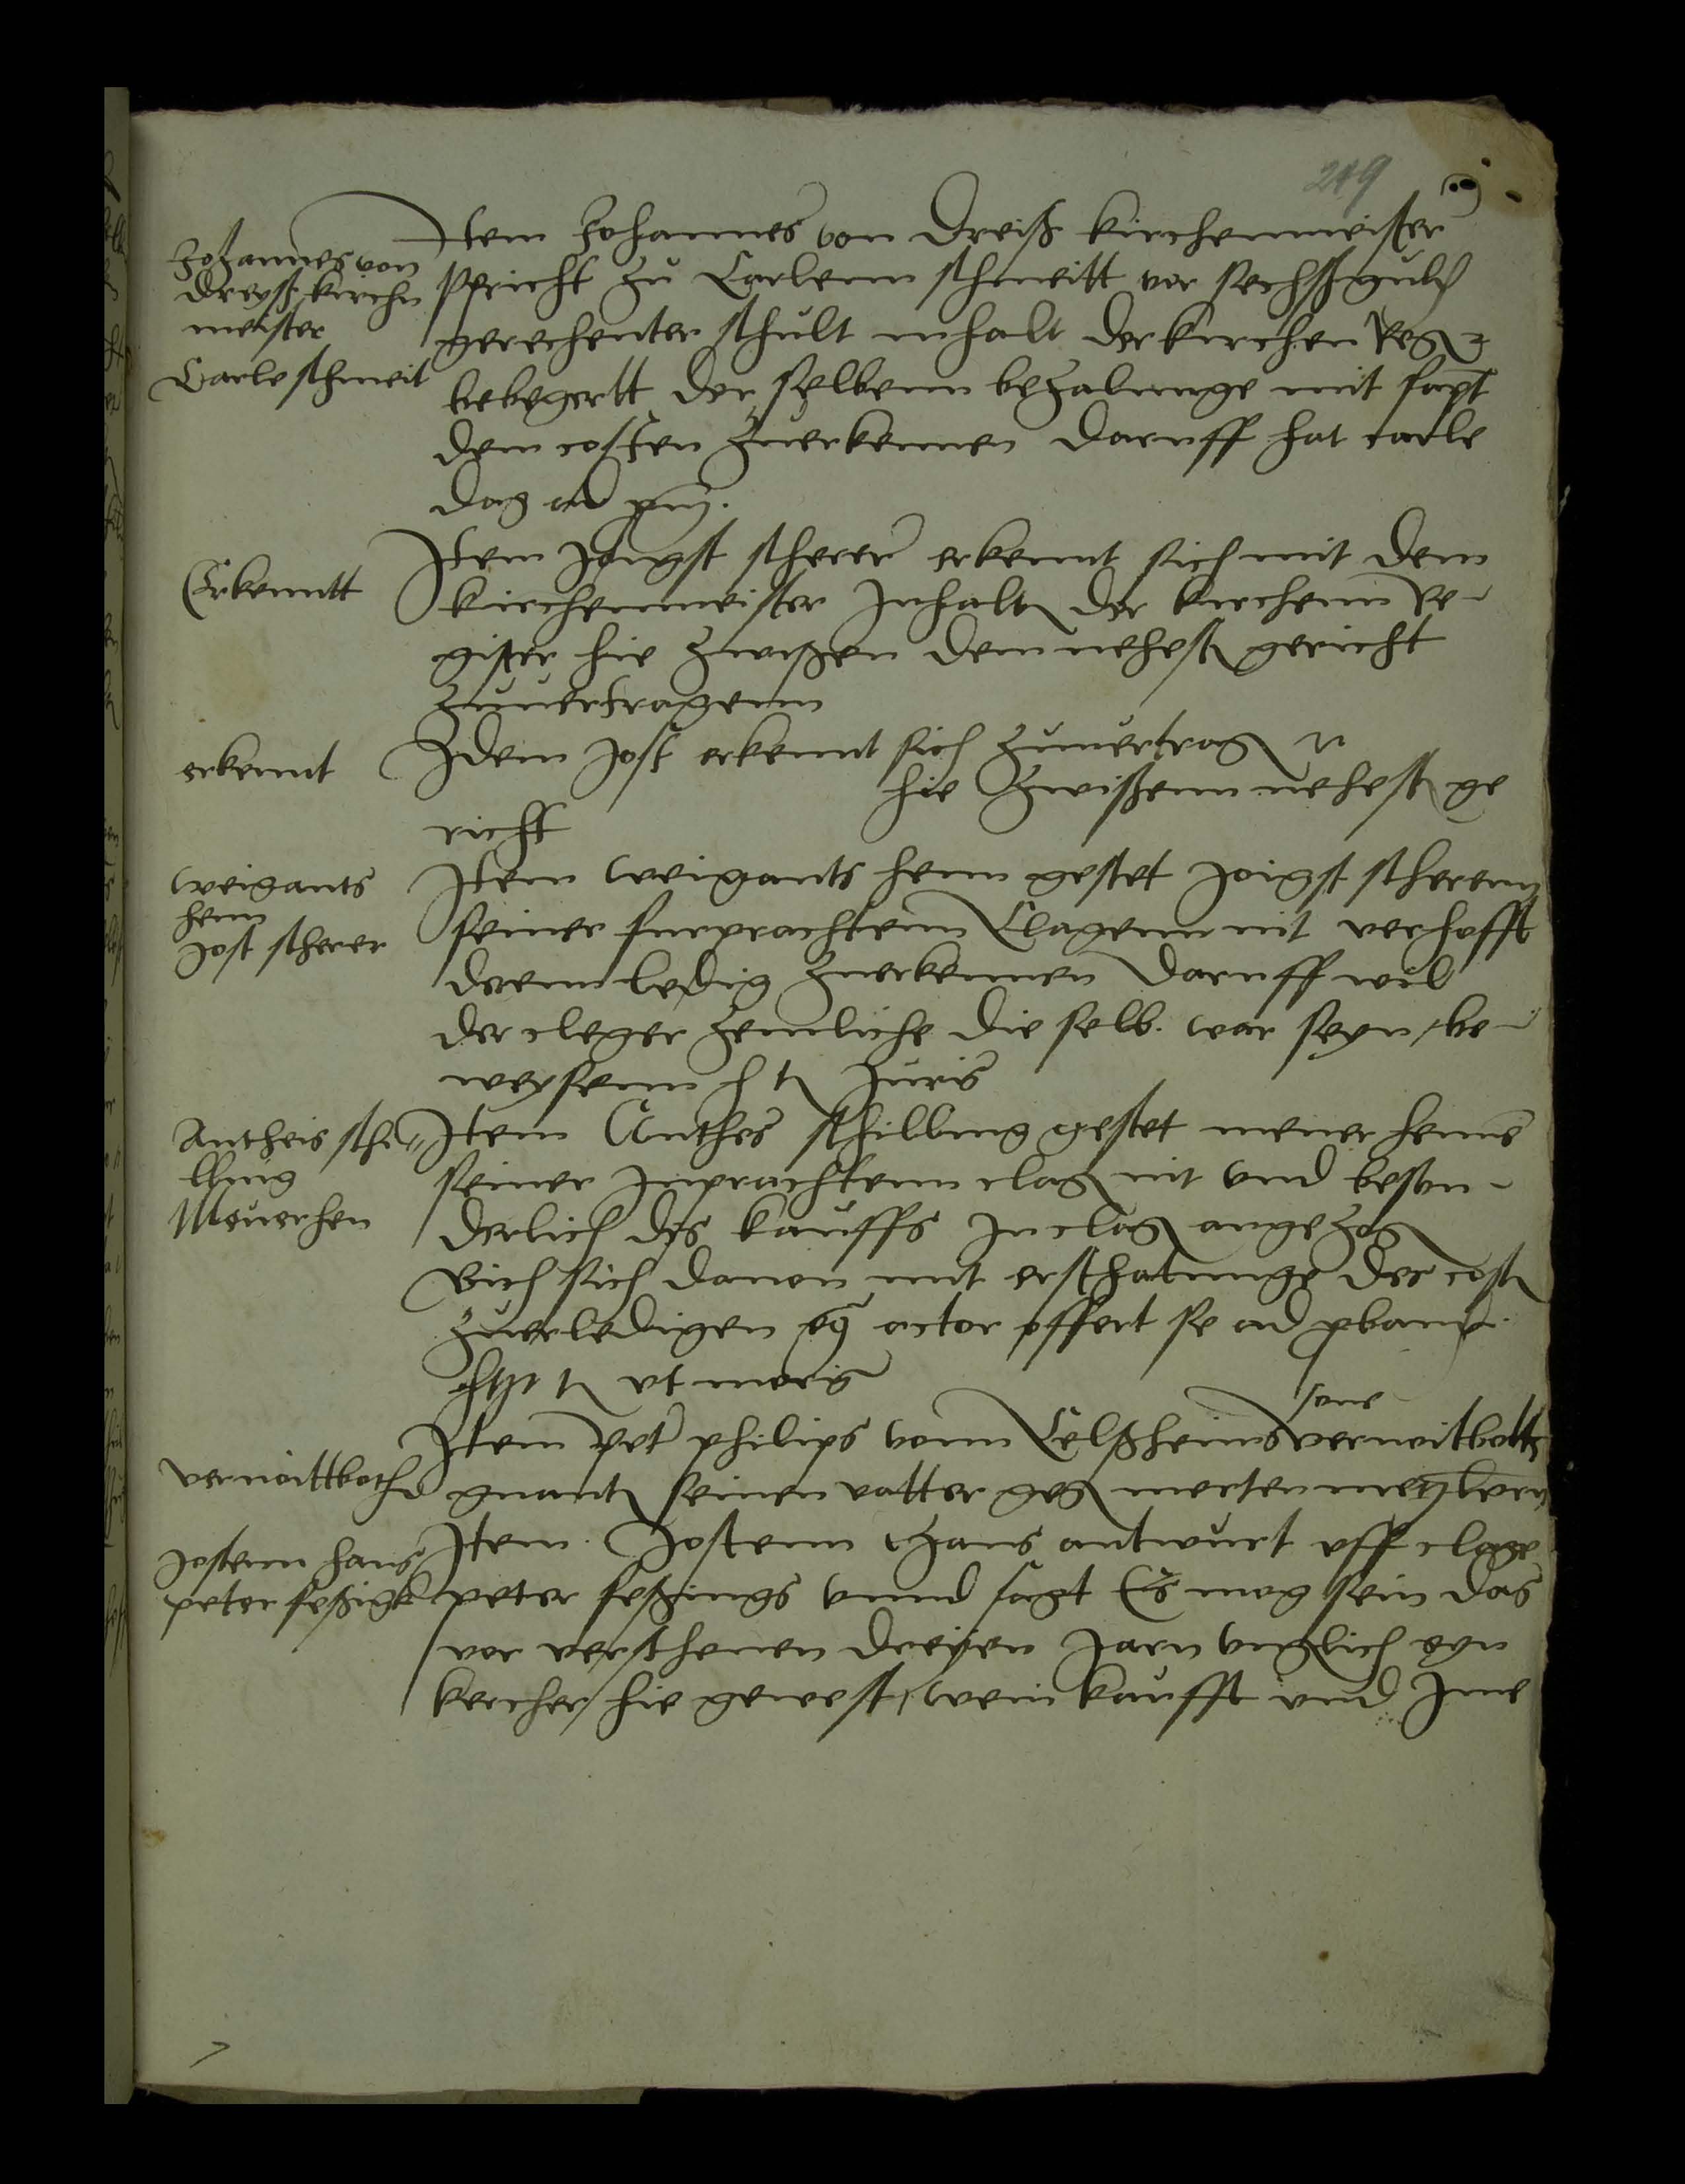 249
Johannes von
dreyß kirchn
meister
Carle schmeit
Item Johannes von Dreiß kirchenmeister
spricht zu Carlenn schmeitt vor sechsß guld
gerechenter schult inhalt der kirchen Reg
bebegertt der selbenn bezalunge mit sapt
dem costen zuerkennen daruff hat carle
dag ad
Erkenntt
Item Joigst scherer erkennt sich mit dem
kirchenmeister Inhalt der kirchenn Re-
gister hie zwißen dem nehest gericht
zuuertragenn
erkennt
Idem Jost erkennt sich zuuertrag
hie zwißenn nehest ge
richt
weigants
henn
Jost scherer
Item weigants henn gestet Joigst scherenn
seiner furprachtenn Clagenn nit verhofft
deren ledig zuerkennen daruff wil
der cleger zemliche die selb. war seyn be-
weysenn h t Juris
Antheis schi
lling
Meuerhen
Item Anthes schilling gestet meuer henne
seiner Inprachtenn clag nit vnd beson-
derlich des kauffs In clag angezog
Bich sich dauon mit erstzatunge der cost
zuerledigen actor offert se ad pband
t vt moris
vernoittboth
sone
Item Pet philips vonn Celßheims vernoitbotts
gnant seinen vatter geg merten metzlern
Jostenn hans
peter seßigk
Item Jostenn Hans antwurt vff clage
peter seßings vnnd sagt Es mog sein das
vor verschenen dreyen Jarn vnglich eyn
kercher hie gewest wein kaufft vnd Ime